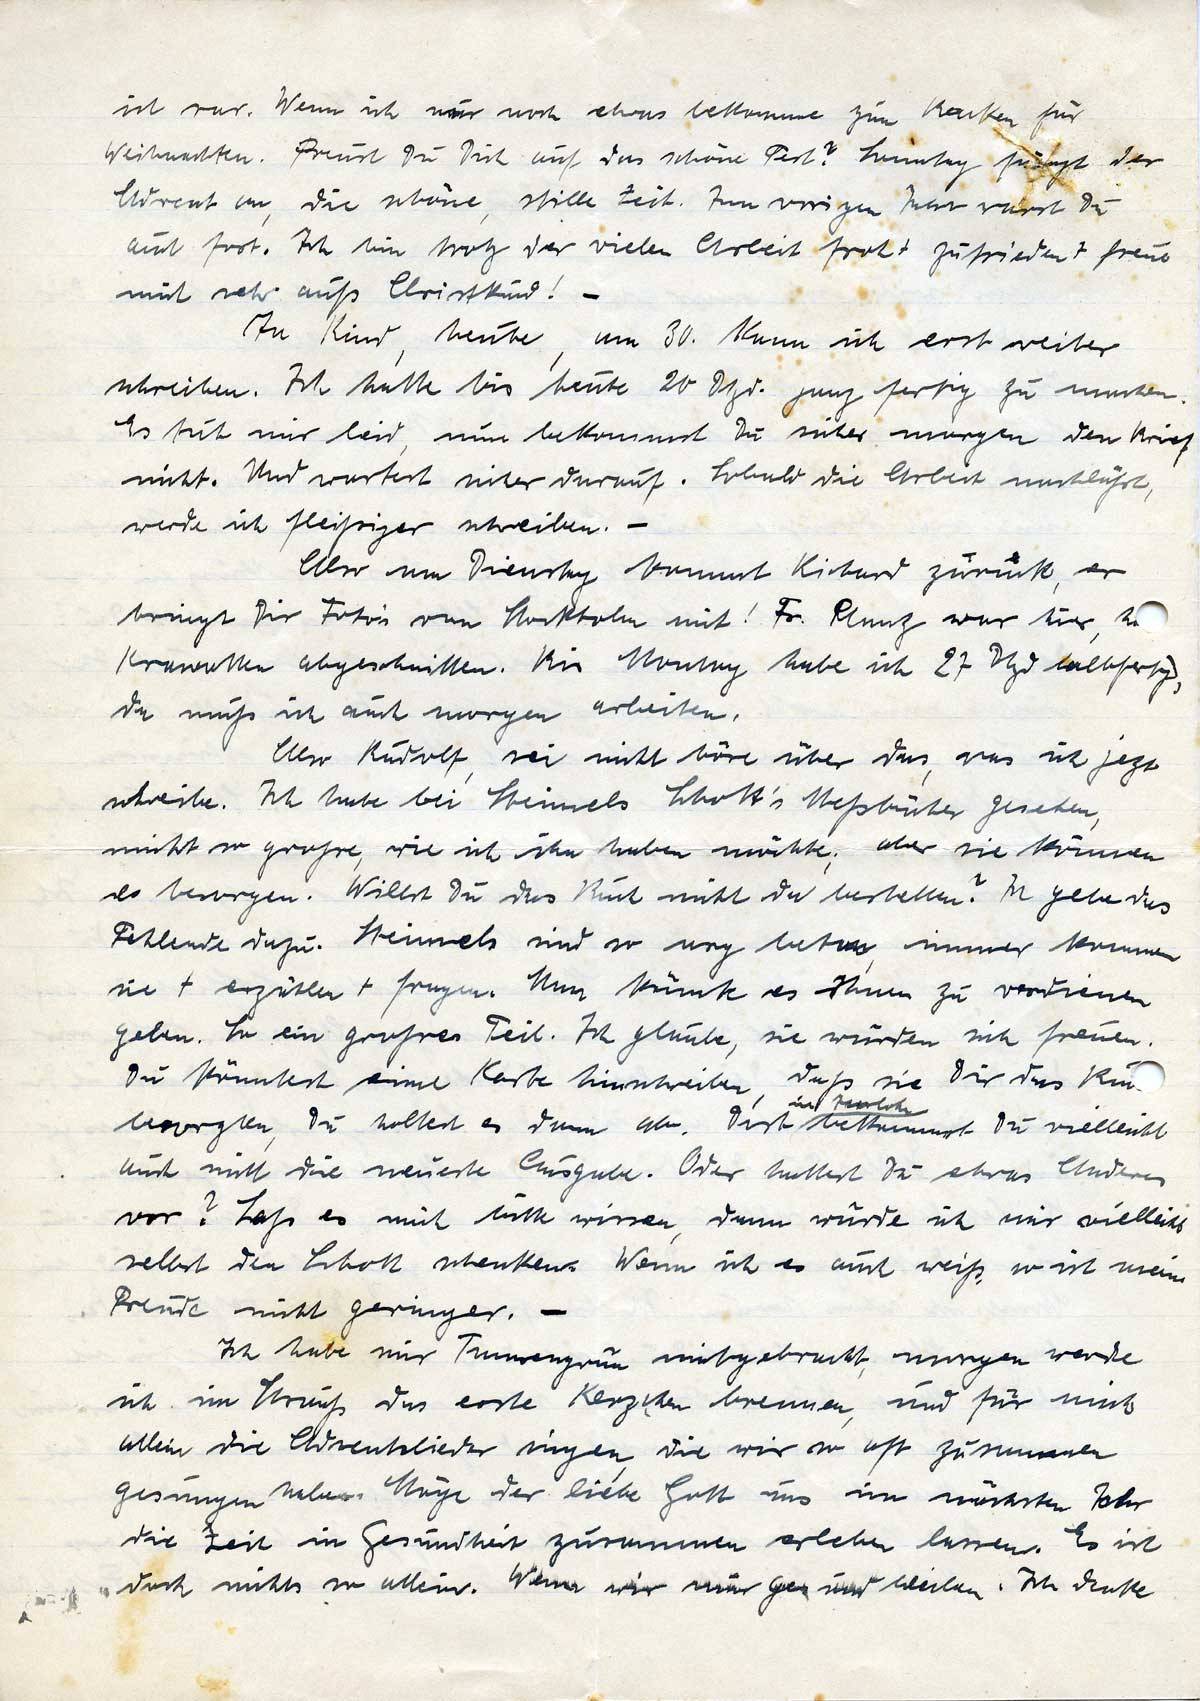 ist rar. Wenn ich nur noch etwas bekomme zum Backen für
Weihnachten. Freust Du Dich auf das schöne Fest? Sonntag fängt der
Advent an, die schöne, stille Zeit. Im vorigen Jahr warst Du
auch fort. Ich bin trotz der vielen Arbeit froh + zufrieden + freue
mich sehr aufs Christkind! –
Ja Kind, heute, am 30. kann ich erst weiter
schreiben. Ich hatte bis heute 20 Dtzd. ganz fertig zu machen.
Es tut mir leid, nun bekommst Du sicher morgen den Brief
nicht. Und wartest sicher darauf. Sobald die Arbeit nachläßt,
werde ich fleißiger schreiben. –
Also am Dienstag kommt Richard zurück, er
bringt Dir Foto's von Stockholm mit! Fr. Planz war hier,
Krawatten abgeschnitten. Bis Montag habe ich 27 Dtzd halbfertig,
da muß ich auch morgen arbeiten.
Also Rudolf, sei nicht böse über das, was ich jezt
schreibe. Ich habe bei Steimels Schott's Meßbücher gesehen,
nicht so große, wie ich ihn haben möchte, aber sie können
es besorgen. Willst Du das Buch nicht da bestellen? Ich gebe das
Fehlende dazu. Steimels sind so arg, immer kommen
sie + erzählen + fragen. Man könnte es Ihnen zu verdienen
geben. So ein großes Teil. Ich glaube, sie würden sich freuen.
Du könntest eine Karte hinschreiben, daß sie Dir das
besorgten, Du holtest es dann ab. Dort bekommst Du vielleicht
auch nicht die neueste Ausgabe. Oder hattest Du etwas Anderes
vor? Laß es mich bitte wissen, dann würde ich mir vielleicht
selbst den Schott schenken. Wenn ich es auch weiß, so ist meine
Freude nicht geringer. –
Ich habe mir Tannengrün mitgebracht, morgen werde
ich im Strauß das erste Kerzchen brennen, und für mich
allein die Adventslieder singen, die wir so oft zusammen
gesungen haben. Möge der liebe Gott uns im nächsten Jahr
die Zeit in Gesundheit zusammen erleben lassen. Es ist
doch nichts so allein. Wenn wir nur gesund bleiben. Ich denke